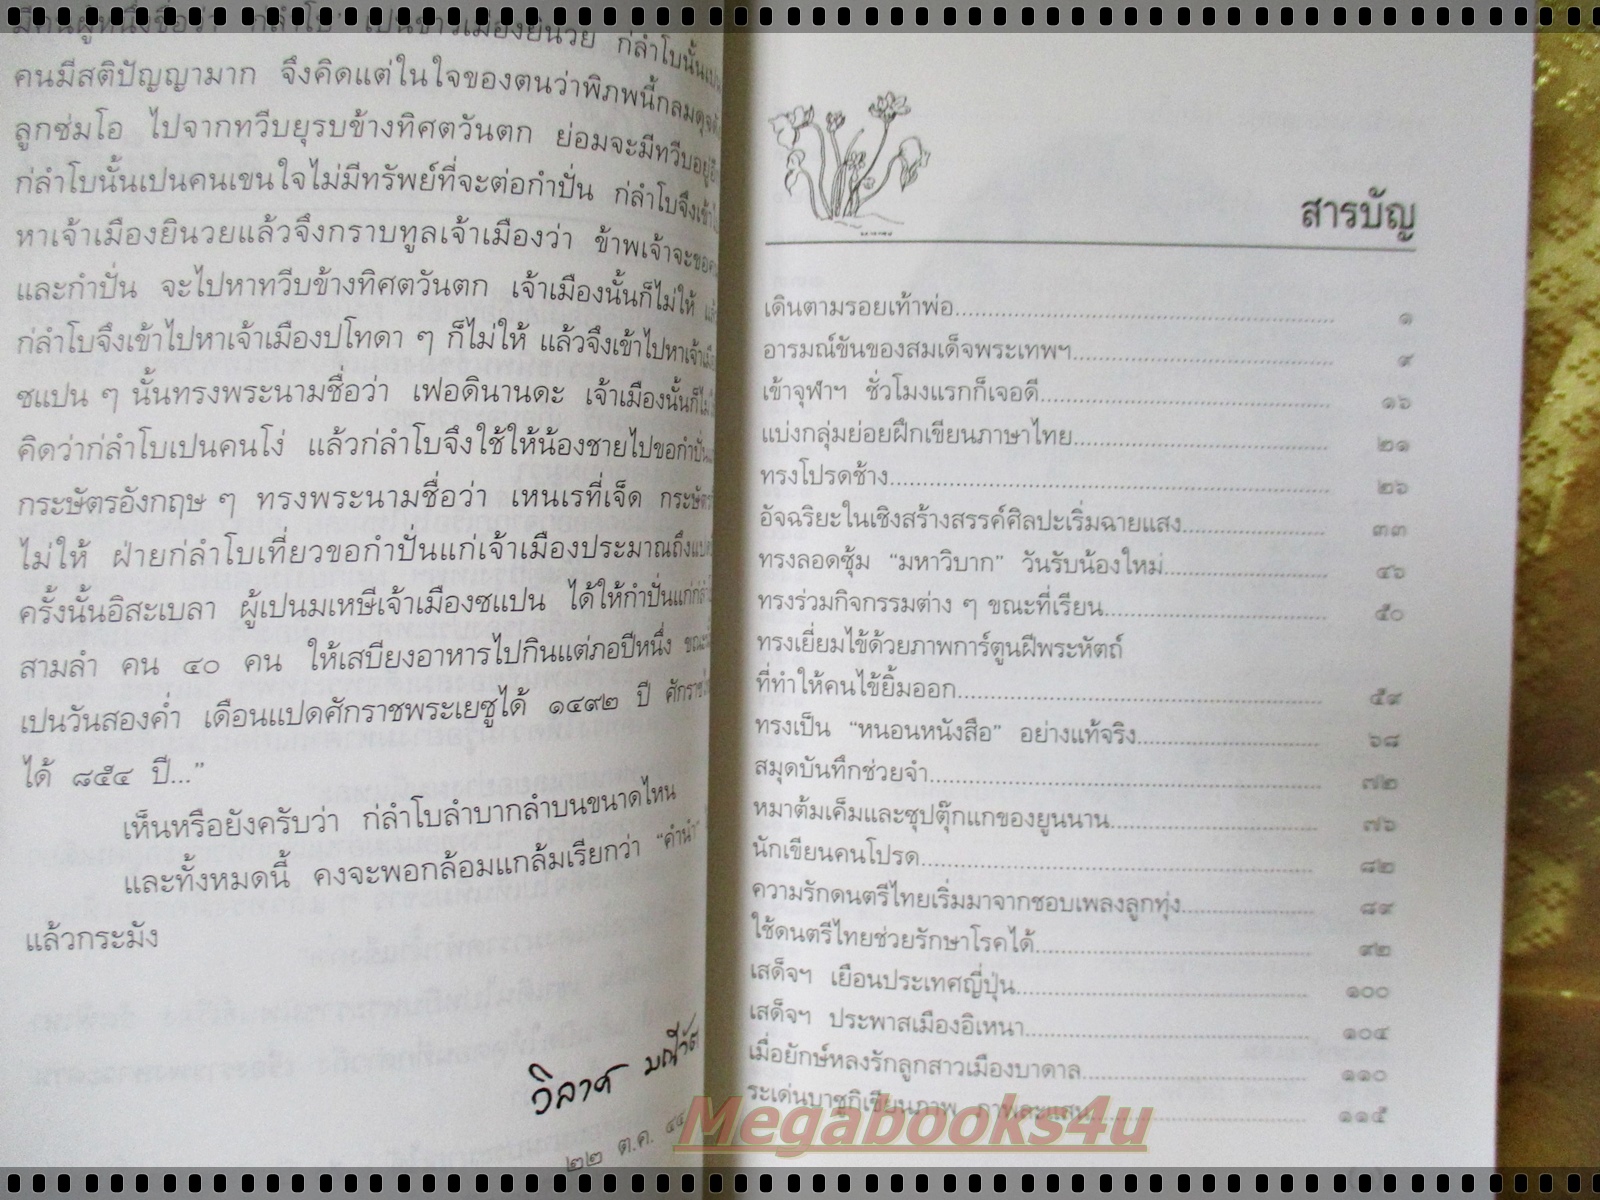 มีคนผู้หนึ่งชื่อว่า ก่ลำโบ เปนชาวเมืองยินวย ก่ลำโบนั้นเปน
คนมีสติปัญญามาก จึงคิดแต่ในใจของตนว่าพิภพนี้กลมดุจดัง
ลูกช่มโอ ไปจากทวีบยุรบข้างทิศตวันตก ย่อมจะมีทวีบอยู่อีก
ก่ลำโบนั้นเปนคนเขนใจไม่มีทรัพย์ที่จะต่อกำปั่น ก่ลำโบจึงเข้าไป
หาเจ้าเมืองยินวยแล้วจึงกราบทูลเจ้าเมืองว่า ข้าพเจ้าจะขอคน
และกำปั่น จะไปหาทวีบข้างทิศตวันตก เจ้าเมืองนั้นก็ไม่ให้ แล้ว
ก่ลำโบจึงเข้าไปหาเจ้าเมืองปโทดา ๆ ก็ไม่ให้ แล้วจึงเข้าไปหาเจ้าเมือง
ชแปน ๆ นั้นทรงพระนามชื่อว่า เฟอดินานดะ เจ้าเมืองนั้นก็ไม่ให้
คิดว่าก่ลำโบเปนคนโง่ แล้วก่ลำโบจึงใช้ให้น้องชายไปขอกำปั่นแก่
กระษัตรอังกฤษ ๆ ทรงพระนามชื่อว่า เหนเรที่เจ็ด กระษัตร
ไม่ให้ ฝ่ายก่ลำโบเที่ยวขอกำปั่นแก่เจ้าเมืองประมาณถึงแปด
ครั้งนั้นอิสะเบลา ผู้เปนมเหษีเจ้าเมืองชแปน ได้ให้กำปั่นแก่ก่ลำโบ
สามลำ คน ๔๐ คน ให้เสบียงอาหารไปกินแต่ภอปีหนึ่ง ขณะนั้น
เปนวันสองค่ำ เดือนแปดศักราชพระเยซูได้ ๑๔๙๒ ปี ศักราช
ได้ ๘๕๔ ปี...”
เห็นหรือยังครับว่า ก่ลำโบลำบากลำบนขนาดไหน
และทั้งหมดนี้ คงจะพอกล้อมแกล้มเรียกว่า “คำนำ”
แล้วกระมัง
วิลาศ มณีวัต
๒๒ ต.ค. ๔๔
สารบัญ
เดินตามรอยเท้าพ่อ.......... ๑
อารมณ์ขันของสมเด็จพระเทพฯ.......... ๙
เข้าจุฬาฯ ชั่วโมงแรกก็เจอดี.......... ๑๖
แบ่งกลุ่มย่อยฝึกเขียนภาษาไทย.......... ๒๑
ทรงโปรดช้าง.......... ๒๖
อัจฉริยะในเชิงสร้างสรรค์ศิลปะเริ่มฉายแสง.......... ๓๓
ทรงลอดซุ้ม “มหาวิบาก” วันรับน้องใหม่.......... ๔๖
ทรงร่วมกิจกรรมต่าง ๆ ขณะที่เรียน.......... ๕๐
ทรงเยี่ยมไข้ด้วยภาพการ์ตูนฝีพระหัตถ์
ที่ทำให้คนไข้ยิ้มออก.......... ๕๙
ทรงเป็น “หนอนหนังสือ” อย่างแท้จริง.......... ๖๘
สมุดบันทึกช่วยจำ.......... ๗๒
หมาต้มเค็มและซุปตุ๊กแกของยูนนาน.......... ๗๖
นักเขียนคนโปรด.......... ๘๒
ความรักดนตรีไทยเริ่มมาจากชอบเพลงลูกทุ่ง.......... ๘๙
ใช้ดนตรีไทยช่วยรักษาโรคได้.......... ๙๒
เสด็จฯ เยือนประเทศญี่ปุ่น.......... ๑๐๐
เสด็จฯ ประพาสเมืองอิเหนา.......... ๑๐๔
เมื่อยักษ์หลงรักลูกสาวเมืองบาดาล.......... ๑๑๐
ระเด่นบาซูกิเขียนภาพ ภาพละแสน.......... ๑๑๕
Megabooks4u